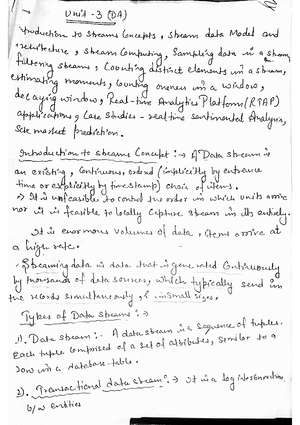 Unit-3 (DA)
Introduction to streams Concepts, stream data Model and
architecture, stream Computing, Sampling data in a stream,
filtering streams, Counting distinct elements in a stream,
estimating moments, Counting oneness in a window,
decaying window, Real-time Analytics Platform (RTAP)
applications, Case Studies - real time sentimental Analysis,
stock market prediction.
Introduction to streams Concept :→ A Data stream is
an existing, Continuous, ordered (implicitly by entrance
time or explicitly by timestamp) chain of items.
→ It is unfeasible to control the order in which units arrive
nor it is feasible to locally capture stream in its entirely.
It is enormous volumes of data, items arrive at
a high rate.
Streaming data is data that is generated Continuously
by thousands of data sources, which typically send in
the records simultaneously, & in small sizes.
Types of Data Streams :→
1). Data stream :- A data stream is a sequence of tuples.
Each tuple comprised of a set of attributes, similar to a
row in a database table.
2). Transactional data stream :→ It is a log interconnection
b/w entities